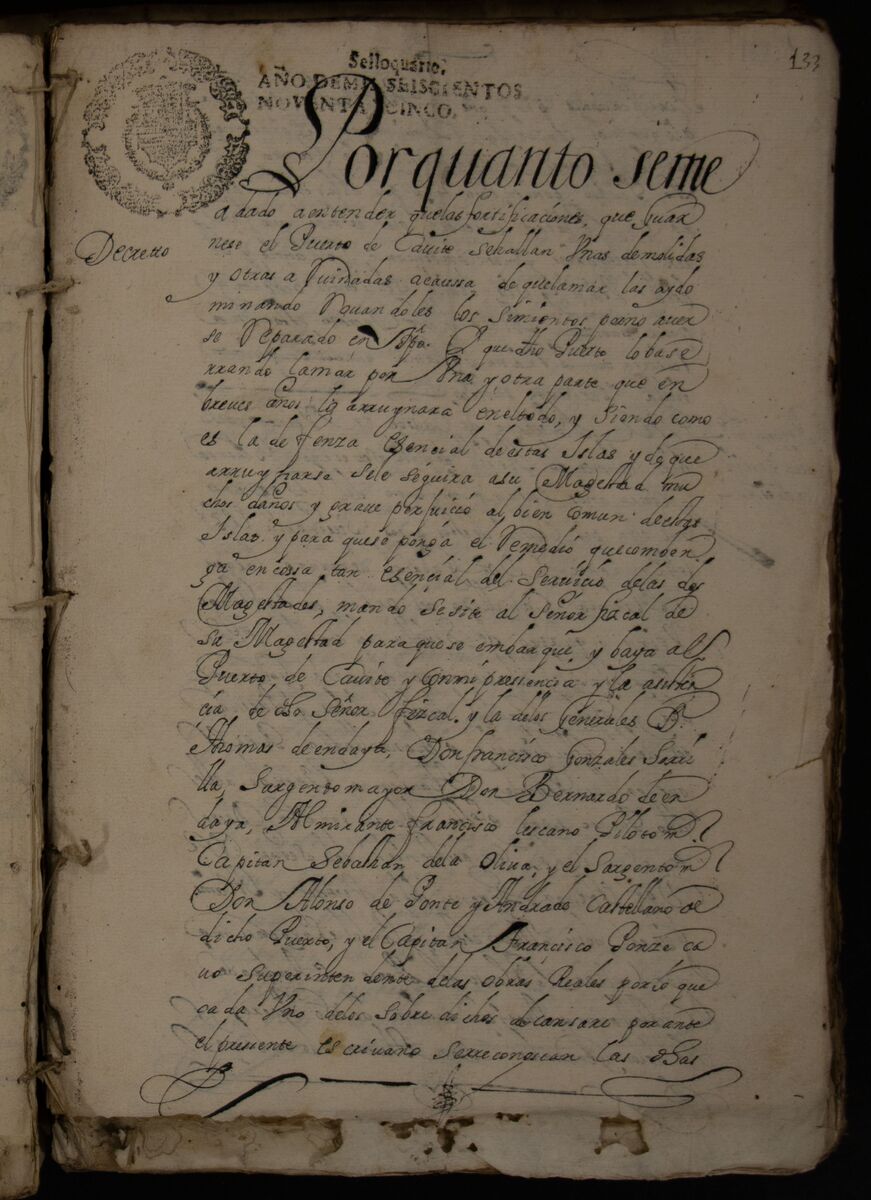 133
Sello quarto,
AÑO DE MIL SEISCIENTOS
NOVENTA Y CINCO.
Porquanto seme
Decretto
a dado aentender quelasfortificaciones, que Guar
nese el Puerto de Cauite sehallan Vnas demolidas
y otras a Ruinadas acaussa de quelamar las aydo
minando
los Simientos, por no auer
se Reparado en tpo. Y que dho Puerto lobase
rrando lamar por Vna y otra parte que en
breues años lo arruynara eneltodo, y siendo como
es la defenza esencial deestas Islas y deque
arruynarse sele seguira asu Magestad mu
chos daños y graue perjuicio al bien Comun destas
Islas y para quese ponga el Remedio quecomben
ga encossa tan esencial del Servicio delas dos
Magestades, mando sesite al Señor fizcal de
su Magestad paraquese embarque y baya al
Puerto de Cauite y Conmi presiencia y la asisten
cia de dho Señor fizcal. y la delos Generales D.
Thomas deendaya, Donfrancisco Gonzales
lla, Sargentomayor Don Bernardo de en
daya, Almirante francisco Lescano Piloto mr
Capitan Sebastian dela Oliua, y el Sargento mr
Don Alonso de Ponte y Andrado Castellano de
dicho Puerto, y el Capitan Francisco Ponze ca
uo superintendente delas obras Reales porlo que
cada Vno delos Sobre dichos alcansare por ante
el presiente escriuano serreconoscan las dhas